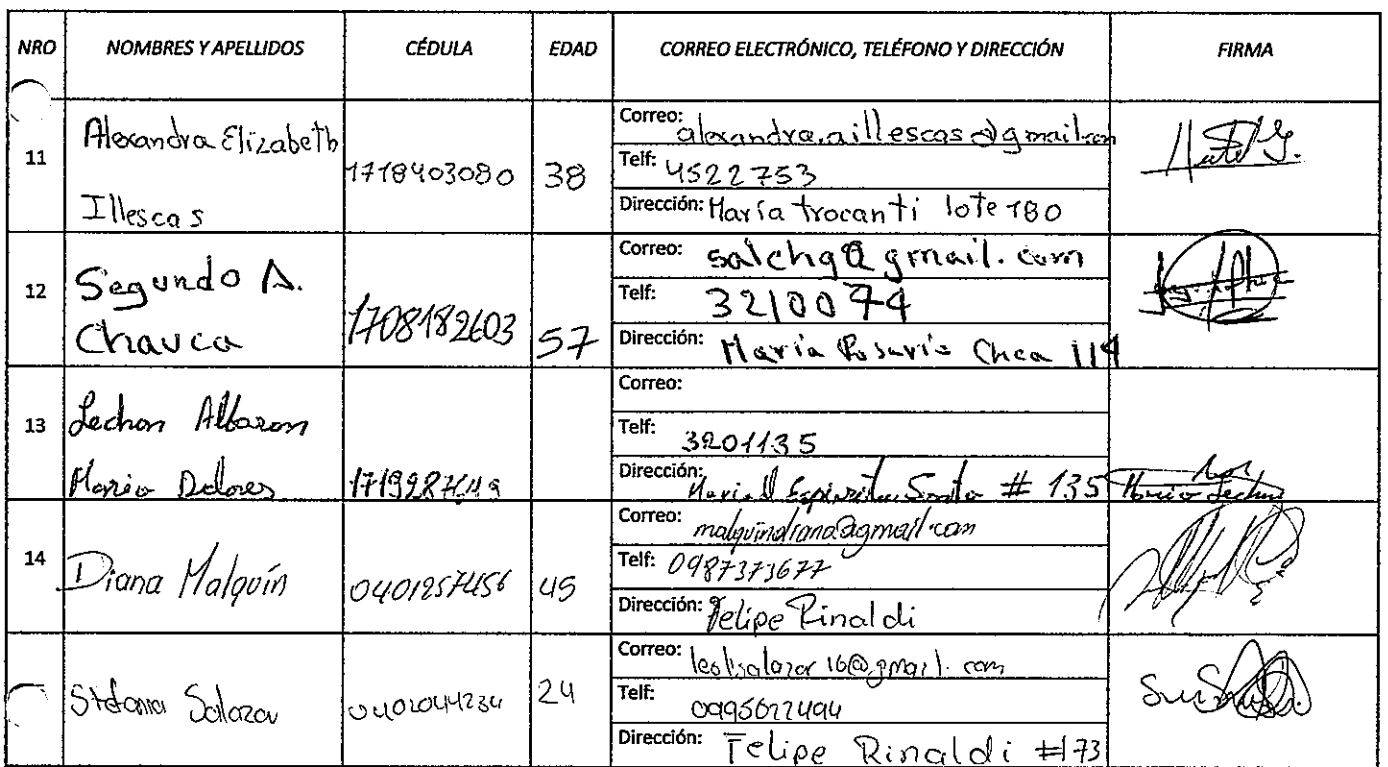 NRO NOMBRES Y APELLIDOS CÉDULA EDAD CORREO ELECTRÓNICO, TELÉFONO Y DIRECCIÓN FIRMA
11 Alexandra Elizabeth Illescas 1718403080 38
Correo: alexandra.aillescas@gmail.com
Telf: 4522753
Dirección: María trocanti lote 180
12 Segundo A. Chauca 1708182603 57
Correo: salchg@gmail.com
Telf: 3210074
Dirección: María Rosario Chca 114
13 Lechon Albaron María Dolores
Correo:
Telf: 3201135
Dirección: Espiritu Santo # 135 María Lechon
14 Diana Malquín 0401257456 45
Correo: malquindiana@gmail.com
Telf: 0987373677
Dirección: Felipe Rinaldi
Stefania Salazar 0402044234 24
Correo: leslisalazar16@gmail.com
Telf: 0995622494
Dirección: Felipe Rinaldi #173